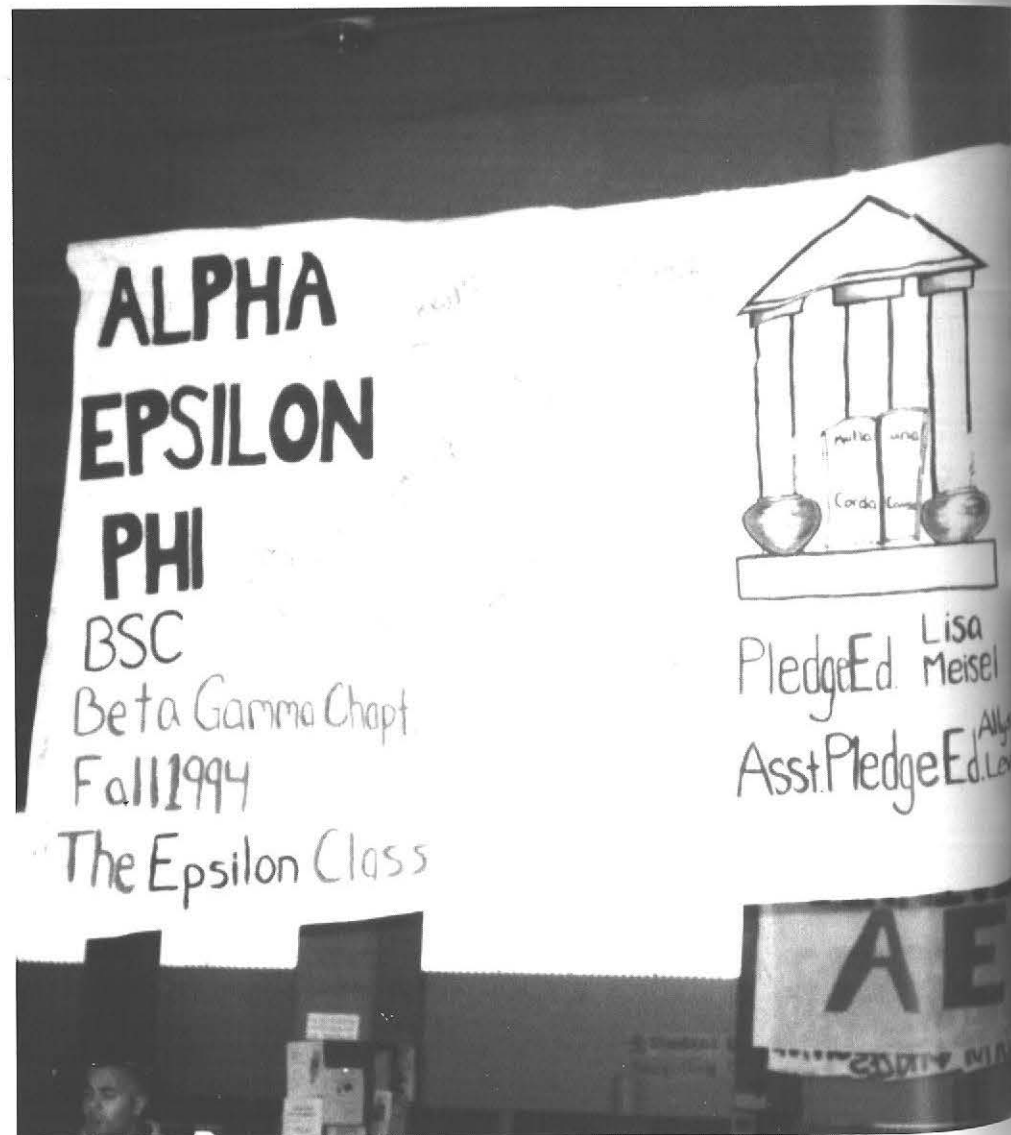 ALPHA
EPSILON
PHI
BSC
Beta Gamma Chapt
Fall 1994
The Epsilon Class
Multa una
Corda
Pledge Ed. Lisa
Meisel
Asst. Pledge Ed.
AE